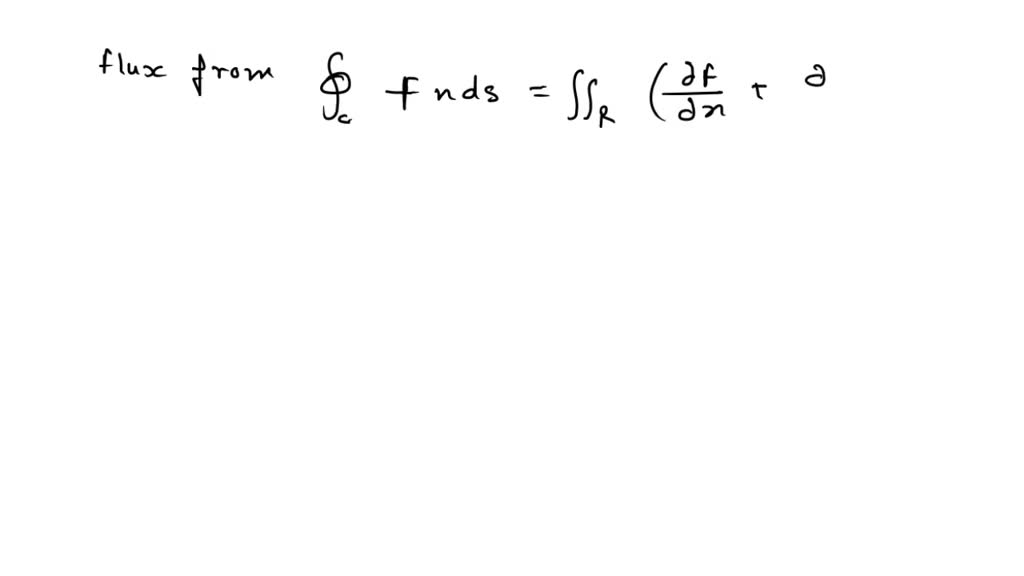 flux from ∮_c F n ds = ∬_R (∂f/∂x + ∂